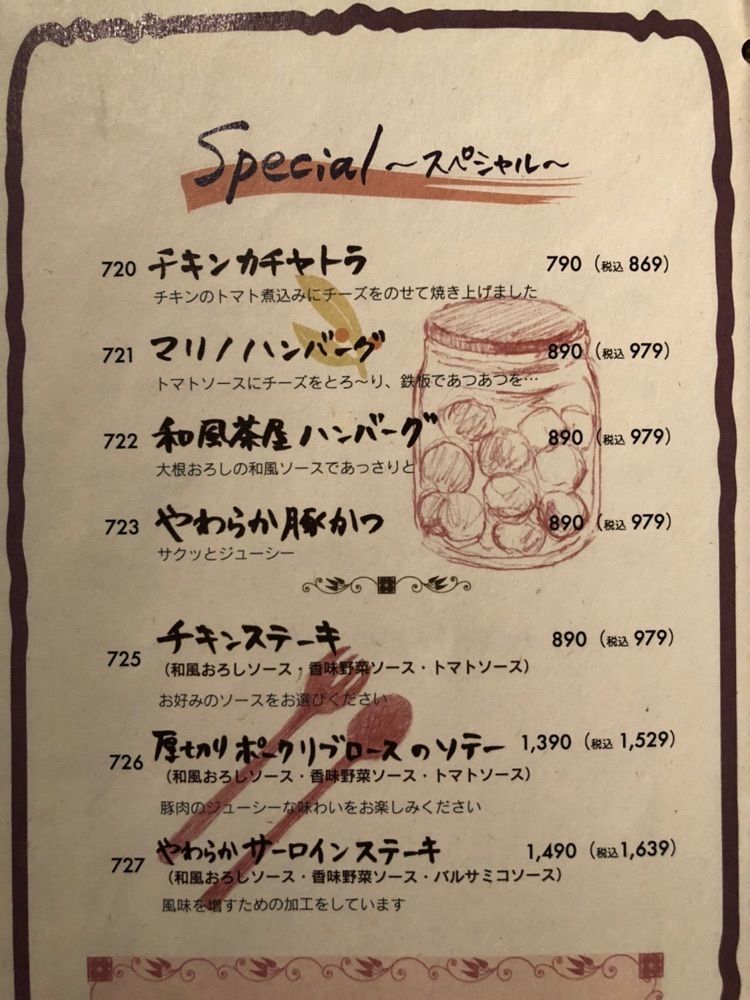 Special ～スペシャル～
720 チキンカチャトラ 790（税込 869）
チキンのトマト煮込みにチーズをのせて焼き上げました
721 マリノハンバーグ 890（税込 979）
トマトソースにチーズをとろ～り、鉄板であつあつを…
722 和風茶屋ハンバーグ 890（税込 979）
大根おろしの和風ソースであっさりと
723 やわらか豚かつ 890（税込 979）
サクッとジューシー
725 チキンステーキ 890（税込 979）
（和風おろしソース・香味野菜ソース・トマトソース）
お好みのソースをお選びください
726 厚切りポークリブロースのソテー 1,390（税込 1,529）
（和風おろしソース・香味野菜ソース・トマトソース）
豚肉のジューシーな味わいをお楽しみください
727 やわらかサーロインステーキ 1,490（税込 1,639）
（和風おろしソース・香味野菜ソース・バルサミコソース）
風味を増すための加工をしています